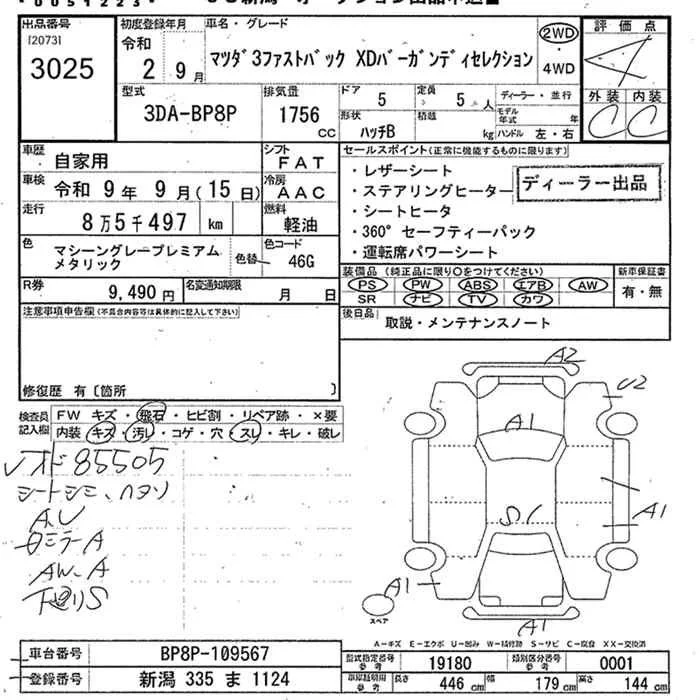 0051223
出品番号
[2073]
3025
初度登録年月
令和
2 9月
車名・グレード
マツダ3ファストバック XDバーガンディセレクション
2WD
・
4WD
評価点
4
外装 内装
C C
型式
3DA-BP8P
排気量
1756
CC
ドア 5
定員 5 人
ディーラー・並行
形状
ハッチB
積載 kg
モデル年式 年
ハンドル 左・右
車歴
自家用
シフト
FAT
車検
令和 9年 9月(15日)
冷房
AAC
走行
8万5千497 km
燃料
軽油
色
マシーングレープレミアム
メタリック
色替
色コード
46G
R券
9,490円
名変通知期限
月 日
セールスポイント(正常に機能するものに限ります)
・レザーシート
・ステアリングヒーター
・シートヒータ
・360°セーフティーパック
・運転席パワーシート
ディーラー出品
装備品 (純正品に限り○をつけてください)
PS PW ABS エアB AW
SR ナビ TV カワ
新車保証書
有・無
後日品
取説・メンテナンスノート
注意事項申告欄(不具合内容等は具体的に記入して下さい)
修復歴 有〔箇所 〕
検査員
記入欄
FW キズ・飛石・ヒビ割・リペア跡・×要
内装 キズ・汚レ・コゲ・穴・スレ・キレ・破レ
85505
シートシミ、ハガソ
A.U
ミラーA
AW.A
下廻りS
A2
U2
A1
A1
S1
A1
A1
スペア
A-キズ E-エクボ U-凹み W-補修跡 S-サビ C-腐食 XX-交換済
車台番号
BP8P-109567
登録番号
新潟 335 ま 1124
型式指定番号
参考
19180
類別区分番号
参考
0001
車庫証明用
参考
長さ 446 cm
幅 179 cm
高さ 144 cm